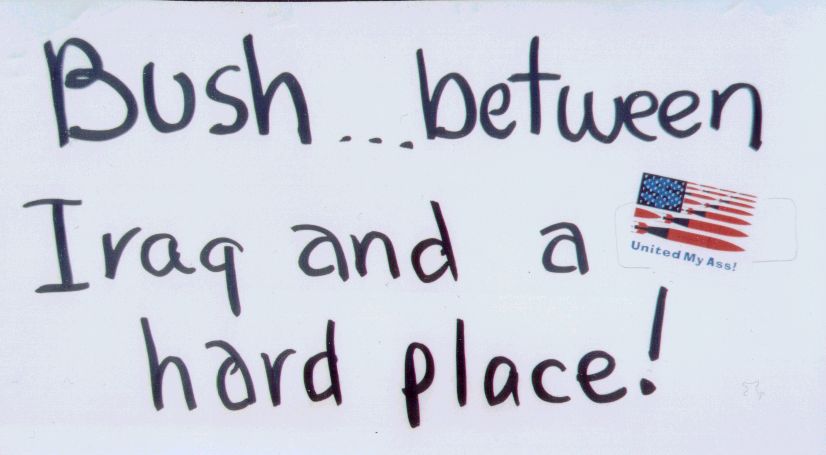 Bush...between
Iraq and a
United My Ass!
hard place!